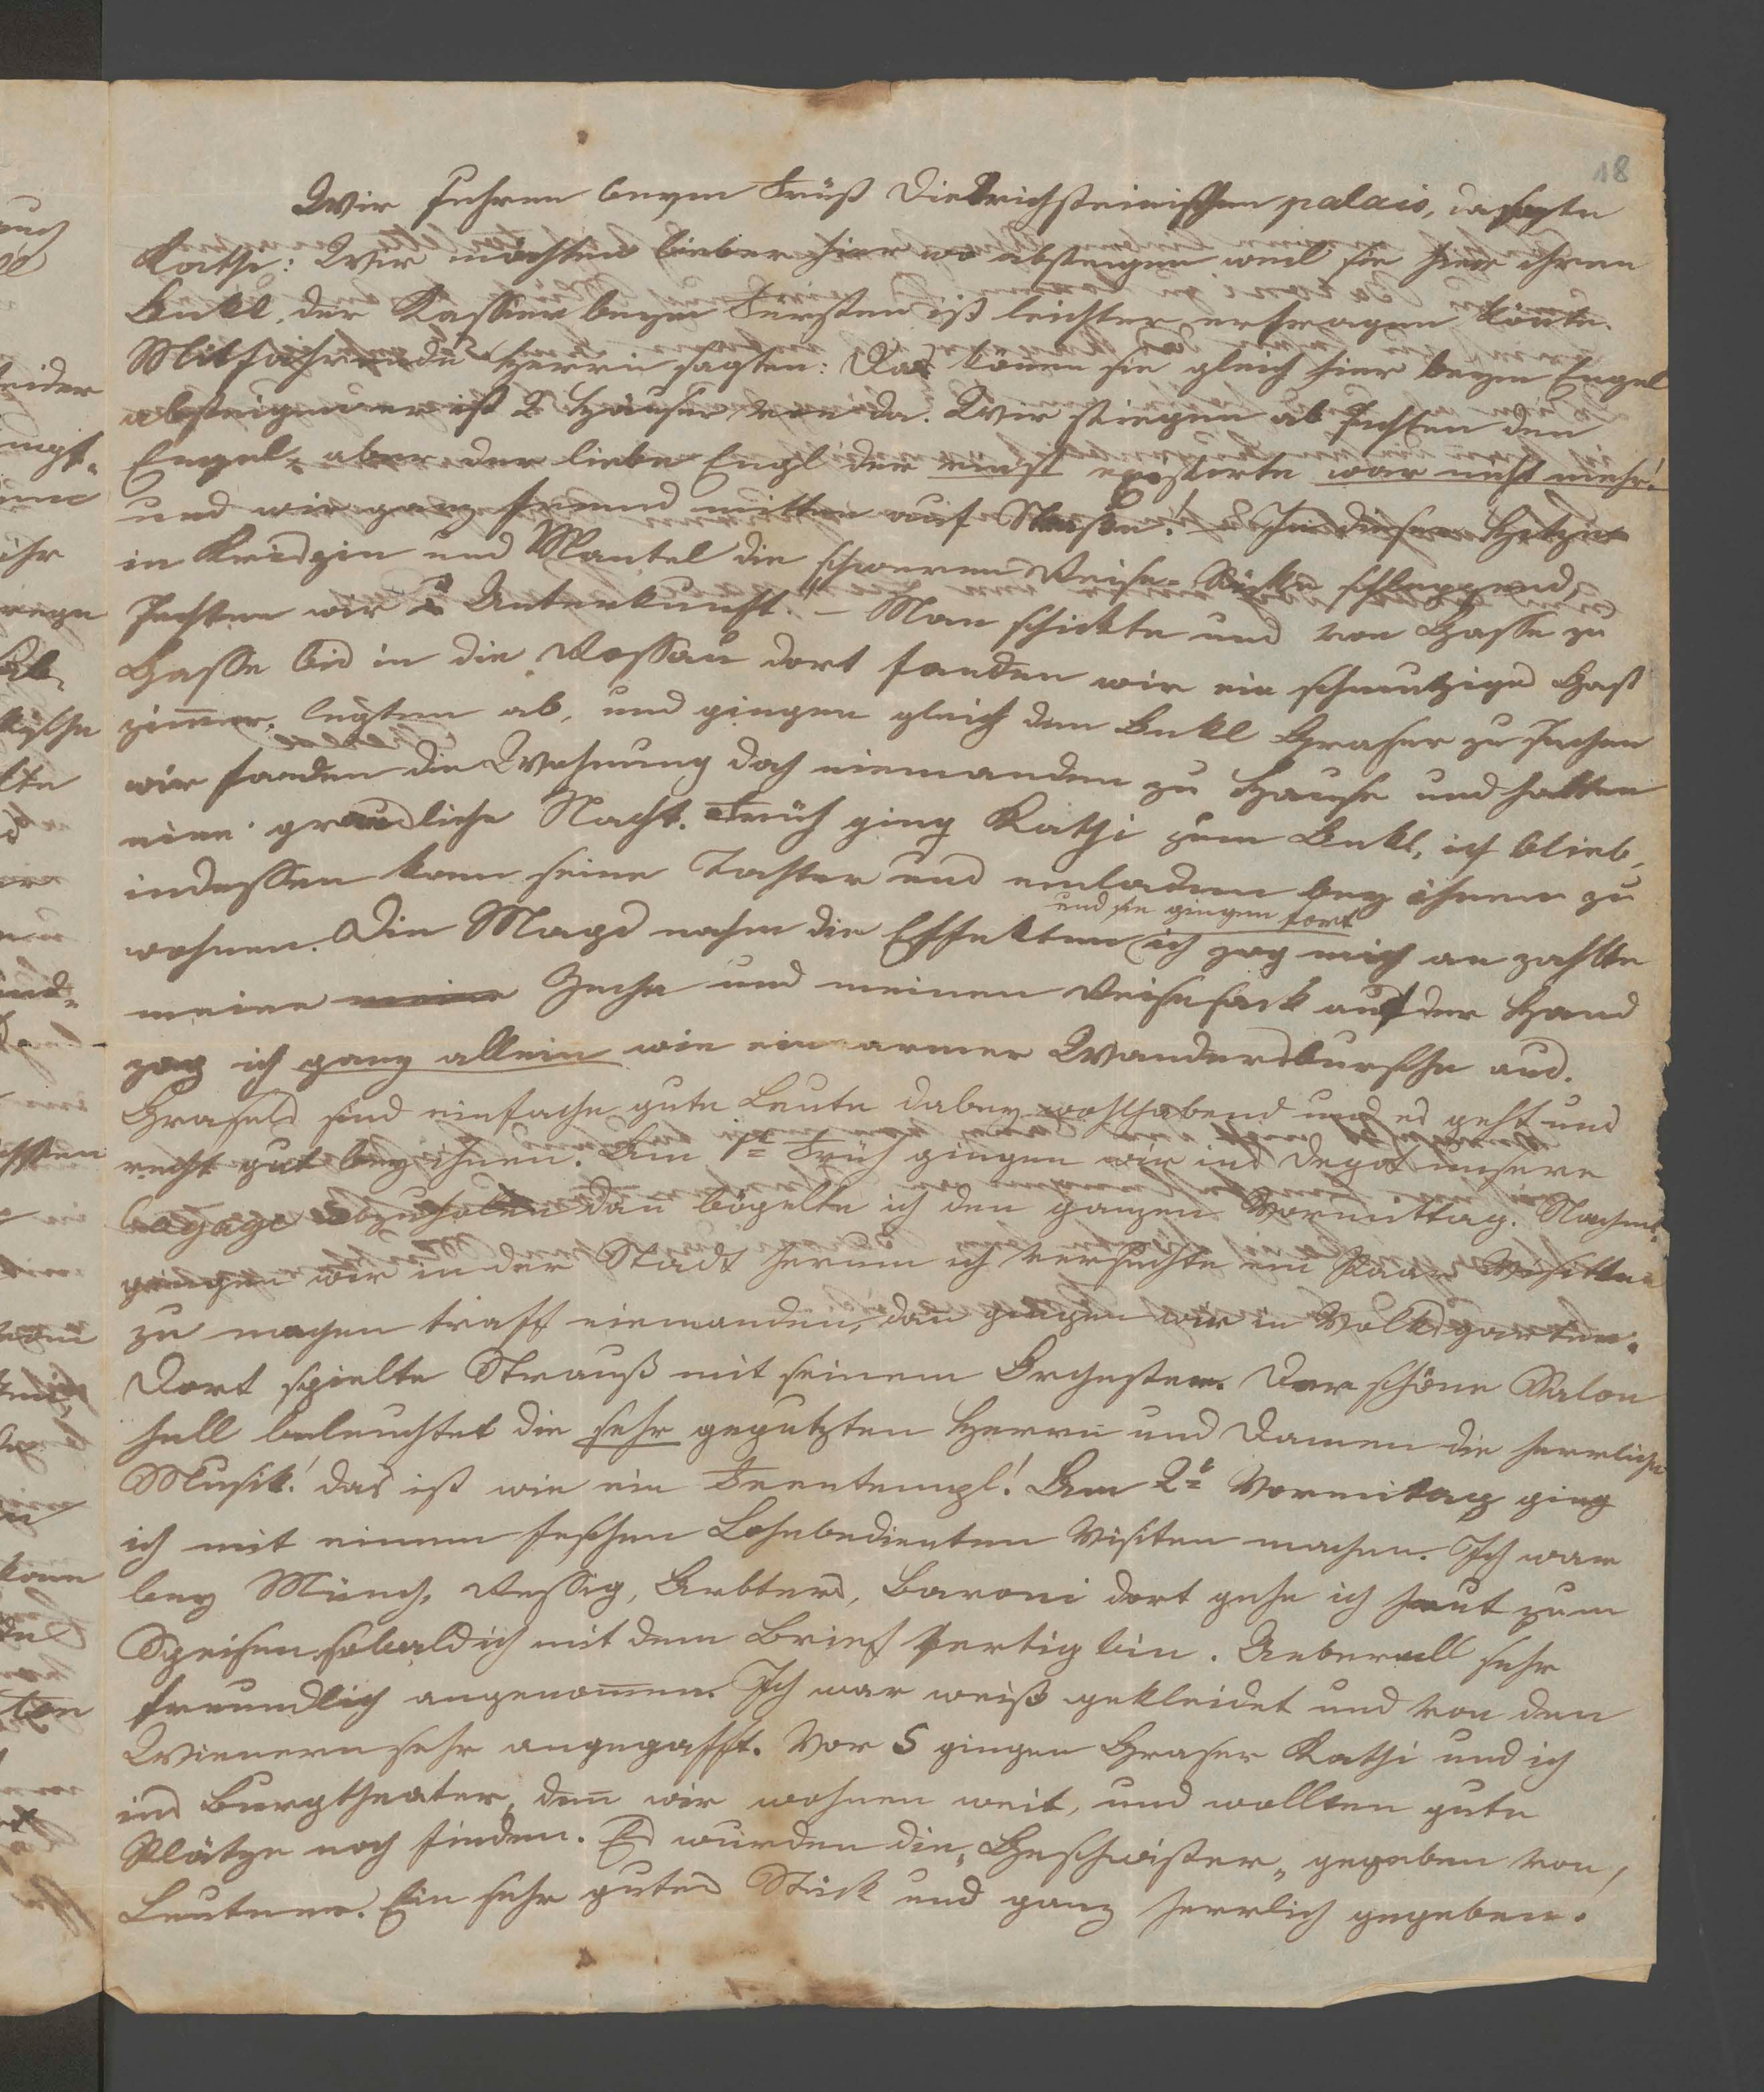 18
Wir fuhren beym Fürst Dietrichsteinischen palais, da sagte
Kathi: Wir möchten lieber hier wo absteigen weil sie hier ihren
Onkl, der Kassier beym Fürsten ist leichter erfragen könte.
Mitfahrende Herrn sagten: Das könen sie gleich hier beym Engel
absteigen er ist 2 Häuser von da. Wir stiegen ab suchten den
Engel, aber der liebe Engl der einst existirte war nicht mehr!
und wir ganz fremd mitten auf Straße! – In dieser Hitze
in Kreidzin und Mantel die schweren Reise-Säcke schleppend,
suchten wir Unterkunft. – Man schickte uns von Gasse zu
Gasse bis in die Rossau dort fanden wir ein schmutziges Gast
zimmer, legten ab, und gingen gleich den Onkl Graser zu suchen
wir fanden die Wohnung doch niemanden zu Hause und hatten
eine grausliche Nacht. Früh ging Kathi zum Onkl, ich blieb,
indessen kam seine Tochter uns einladen bey ihnen zu
wohnen. Die Magd nahm die Effekten und sie gingen fort ich zog mich an zahlte
meine meine Zeche und meinen Reisesack auf der Hand
zog ich ganz allein wie ein armer Wandersbursche aus.
Grasers sind einfache gute Leute dabey wohlhabend und es geht uns
recht gut bey ihnen. Am 1t Früh gingen wir ins Depot unsere
bagage abzuholen dan bögelte ich den ganzen Vormittag. Nachmt.
gingen wir in der Stadt herum ich versuchte ein Paar Visitten
zu machen traff niemanden, dan gingen wir in Volksgarten.
Dort spielte Strauß mit seinem Orchester. Der schöne Salon
hell beleuchtet die sehr geputzten Herrn und Damen die herrliche
Musik! das ist wie ein Feentempl! Am 2t Vormitag ging
ich mit einem feschen Lohnbedienten Visiten machen. Ich war
bey Münch, Vessig, Arbters, Baroni dort gehe ich heut zum
Speisen sobald ich mit dem Brief fertig bin. Ueberall sehr
freundlich angenomen. Ich war weiß gekleidet und von den
Wienern sehr angegafft. Vor 5 gingen Graser Kathi und ich
ins Burgtheater, den wir wohnen weit, und wollten gute
Plätze noch finden. Es wurden die „Geschwister„ gegeben von,
Leutner. Ein sehr gutes Stück und ganz herrlich gegeben.